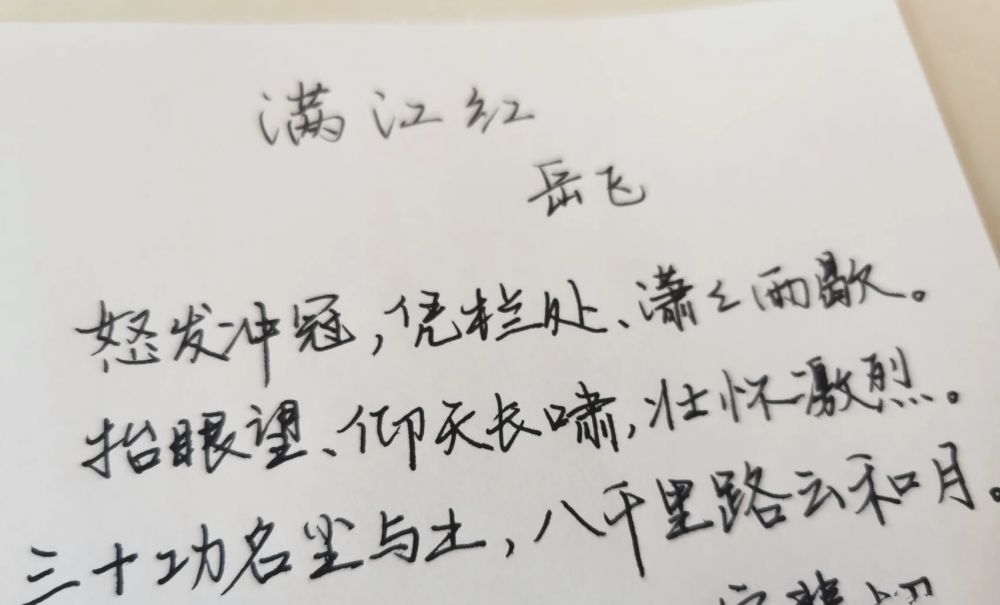 满江红
岳飞
怒发冲冠，凭栏处、潇々雨歇。
抬眼望、仰天长啸，壮怀激烈。
三十功名尘与土，八千里路云和月。